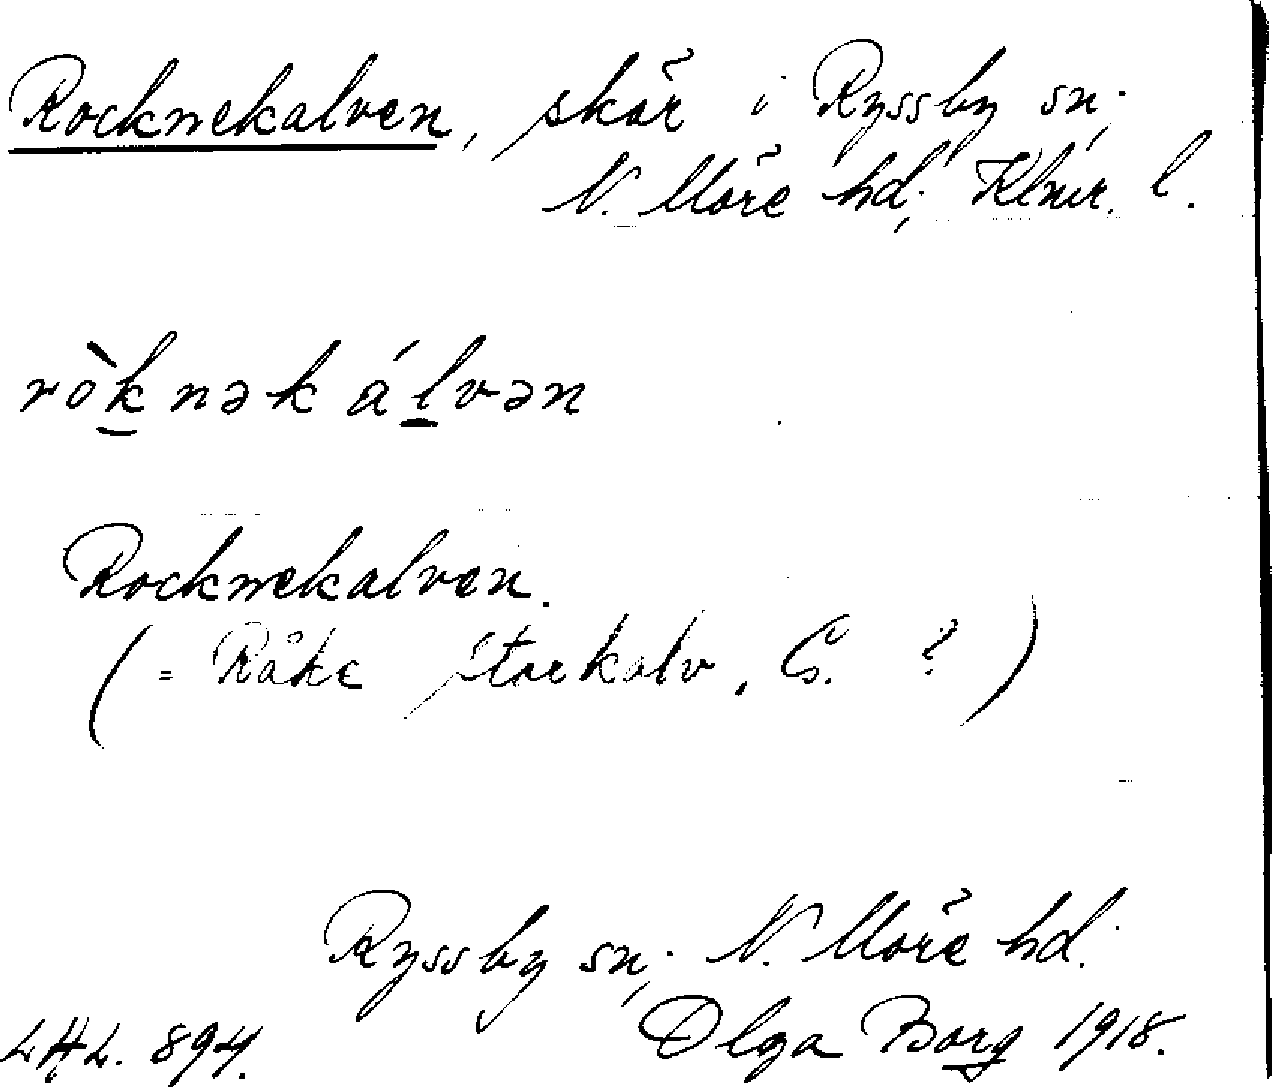 Rocknekalven, skär i Ryssby sn,
N. Möre hd, Klmr. l.
ròknək álvən
Rocknekalven.
(= Råke Storkalv, G. ?)
Ryssby sn, N. Möre hd.
LHL. 894. Olga Borg 1918.